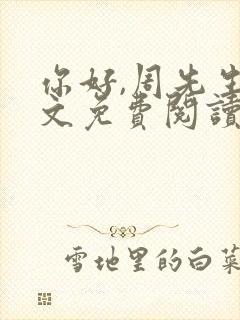 你好,周先生
文免费閱讀
雪地里的白菜